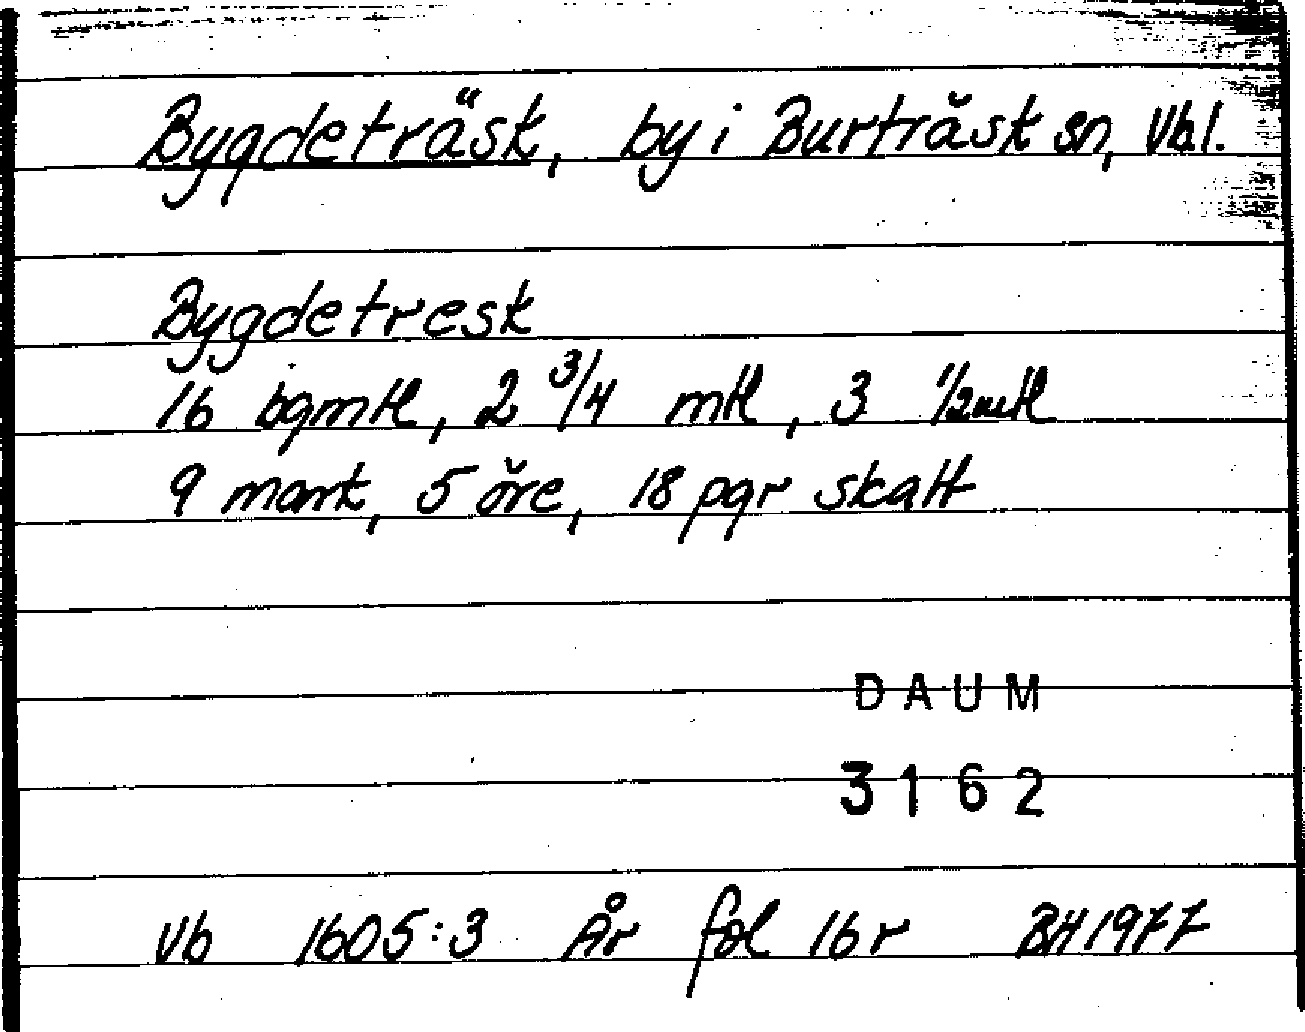 Bygdeträsk, by i Burträsk sn, Vbl.
Bygdetresk
16 bgmtl, 2 3/4 mtl, 3 1/2 mtl
9 mark, 5 öre, 18 pgr skatt
DAUM
3162
Vb 1605:3 År fol 16 r BH 1977